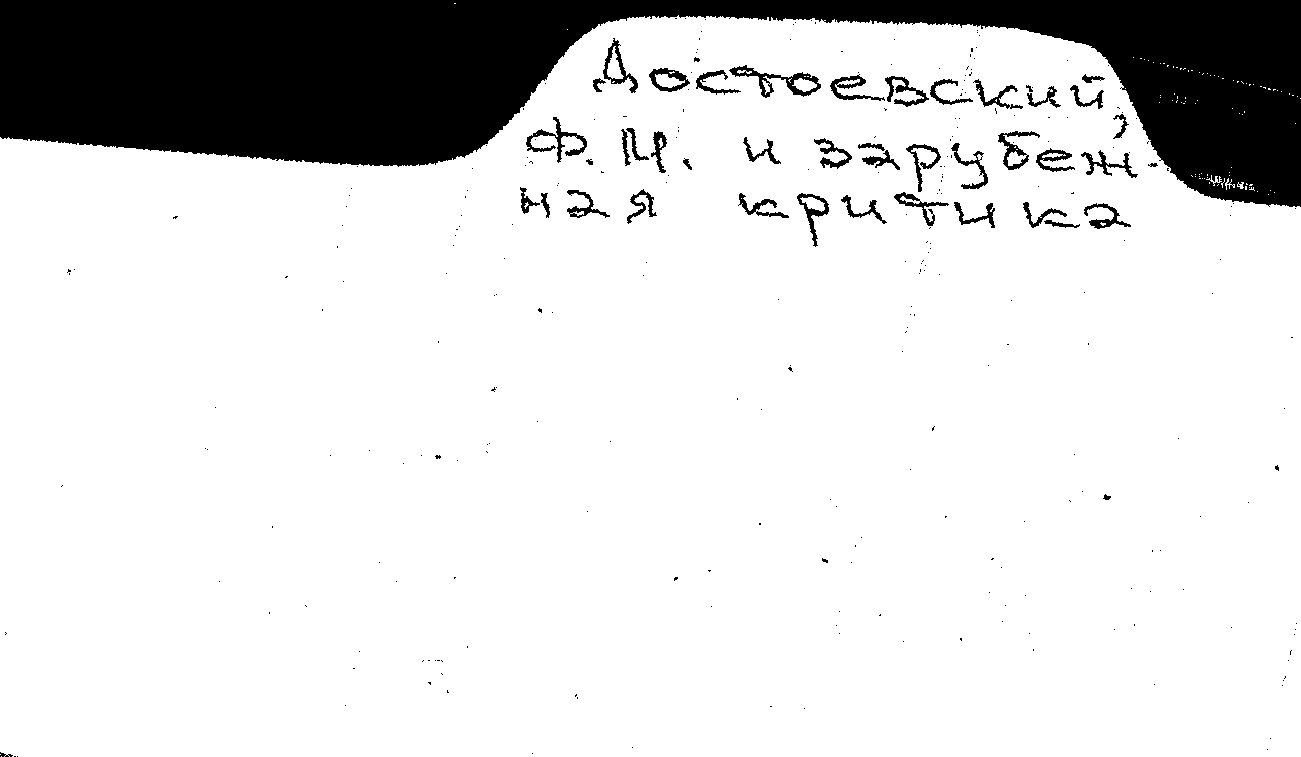 Достоевский,
Ф.М. и зарубеж-
ная критика